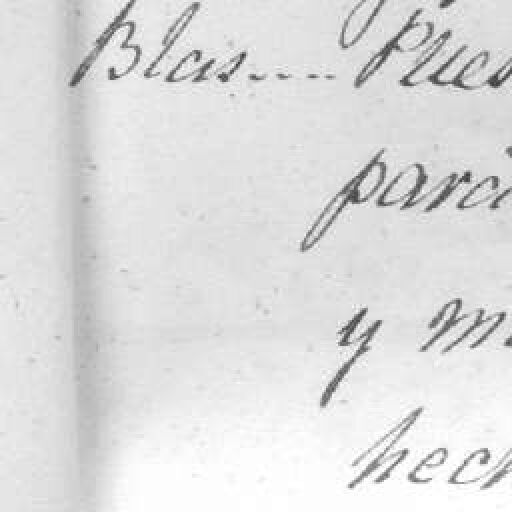 Blas..... Pues
parci
y m
hech